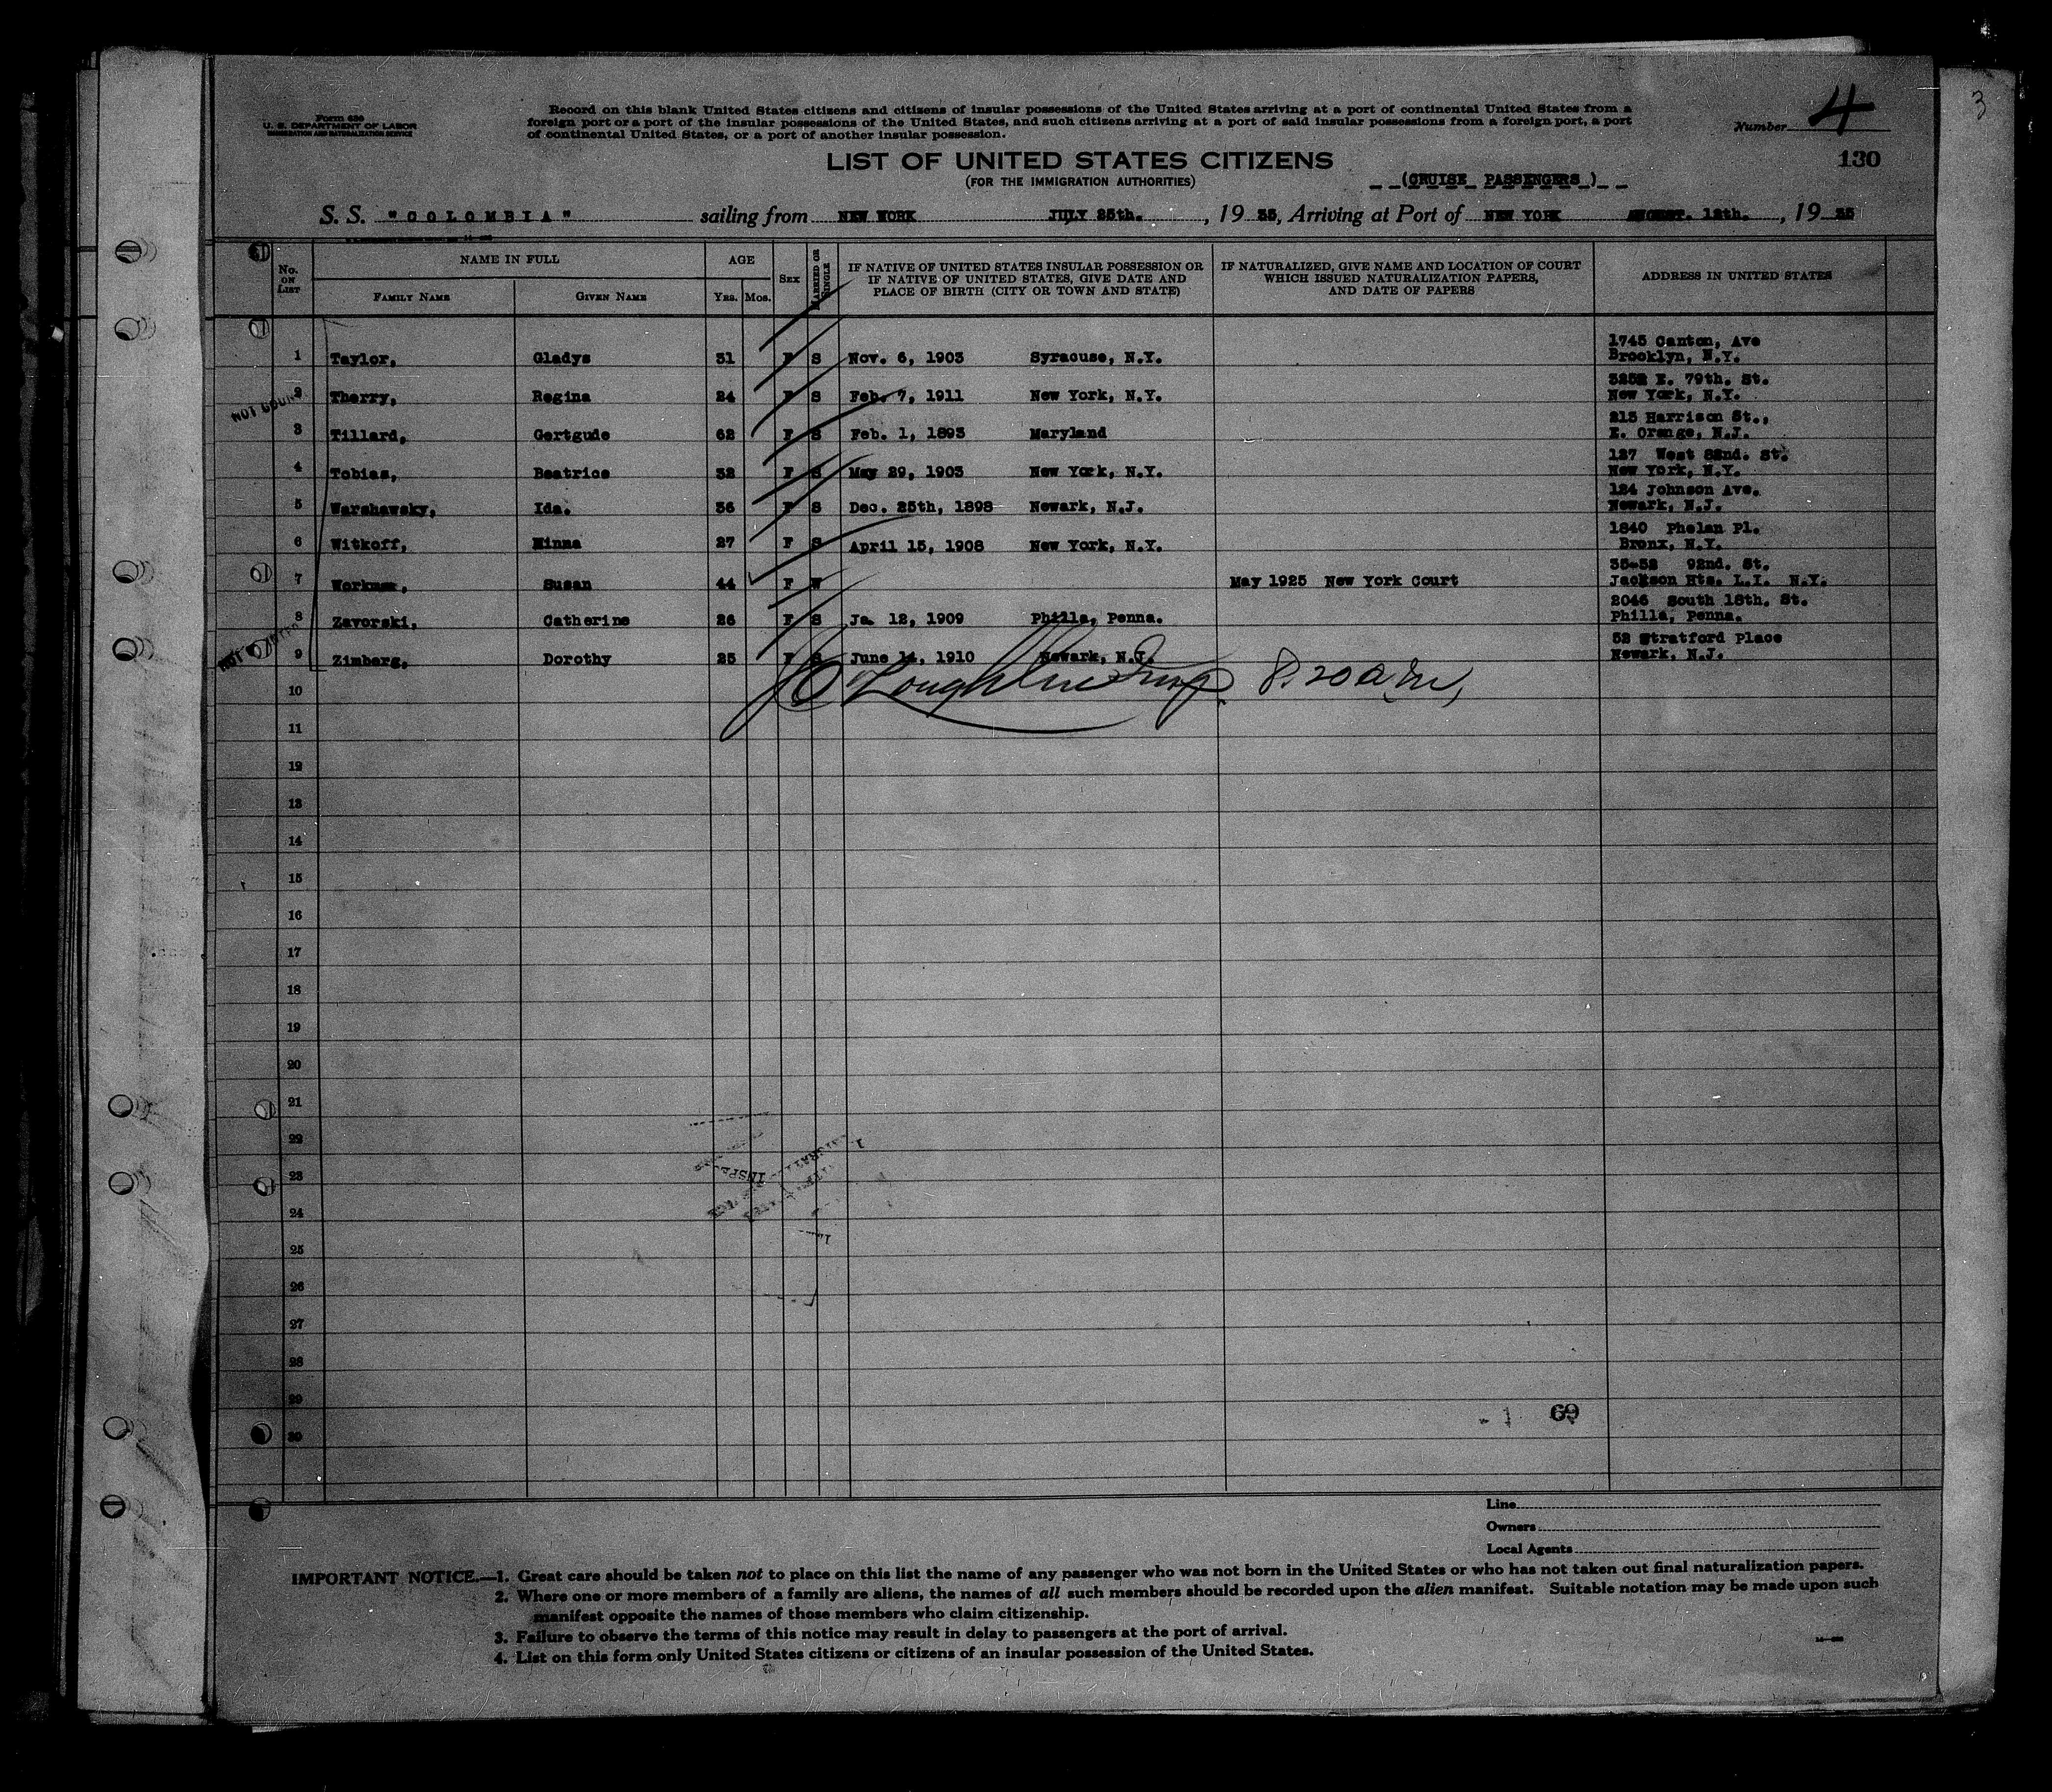 Form 630
U. S. DEPARTMENT OF LABOR
IMMIGRATION AND NATURALIZATION SERVICE
Record on this blank United States citizens and citizens of insular possessions of the United States arriving at a port of continental United States from a
foreign port or a port of the insular possessions of the United States, and such citizens arriving at a port of said insular possessions from a foreign port, a port
of continental United States, or a port of another insular possession.
Number 4
3
130
LIST OF UNITED STATES CITIZENS
(FOR THE IMMIGRATION AUTHORITIES)
(CRUISE PASSENGERS)
S. S. "COLOMBIA" sailing from NEW WORK JULY 25th. , 19 35, Arriving at Port of NEW YORK AUGUST. 12th. , 19 35
No. on List NAME IN FULL AGE Sex MARRIED OR SINGLE IF NATIVE OF UNITED STATES INSULAR POSSESSION OR IF NATIVE OF UNITED STATES, GIVE DATE AND PLACE OF BIRTH (CITY OR TOWN AND STATE) IF NATURALIZED, GIVE NAME AND LOCATION OF COURT WHICH ISSUED NATURALIZATION PAPERS, AND DATE OF PAPERS ADDRESS IN UNITED STATES
Family Name Given Name Yrs. Mos.
1 Taylor, Gladys 31 F S Nov. 6, 1903 Syracuse, N.Y. 1745 Canton, Ave Brooklyn, N.Y.
NOT
2 Therry, Regina 24 F S Feb. 7, 1911 New York, N.Y. E. 79th. St. New York, N.Y.
3 Tillard, Gertgude 62 F S Feb. 1, 1893 Maryland 213 Harrison St., E. Orange, N.J.
4 Tobias, Beatrice 32 F S May 29, 1903 New York, N.Y. 127 West 82nd. St. New York, N.Y.
5 Warshawsky, Ida. 36 F S Dec. 25th, 1898 Newark, N.J. 124 Johnson Ave. Newark, N.J.
6 Witkoff, Minna 27 F S April 15, 1908 New York, N.Y. 1840 Phelan Pl. Bronx, N.Y.
7 Susan 44 F W May 1925 New York Court 35-52 92nd. St. Jackson Hts. L.I. N.Y.
8 Zavorski, Catherine 26 F S Ja. 12, 1909 Philla, Penna. 2046 South 18th. St. Philla, Penna.
NOT
9 Zimberg, Dorothy 25 F S June 14, 1910 Newark, N.J. 52 Stratford Place Newark, N.J.
10 O'Loughlin Insp. 8.20 a.m.
11
12
13
14
15
16
17
18
19
20
21
22
23
24
25
26
27
28
29
30
69
Line
Owners
Local Agents
IMPORTANT NOTICE.—1. Great care should be taken not to place on this list the name of any passenger who was not born in the United States or who has not taken out final naturalization papers.
2. Where one or more members of a family are aliens, the names of all such members should be recorded upon the alien manifest. Suitable notation may be made upon such
manifest opposite the names of those members who claim citizenship.
3. Failure to observe the terms of this notice may result in delay to passengers at the port of arrival.
4. List on this form only United States citizens or citizens of an insular possession of the United States.